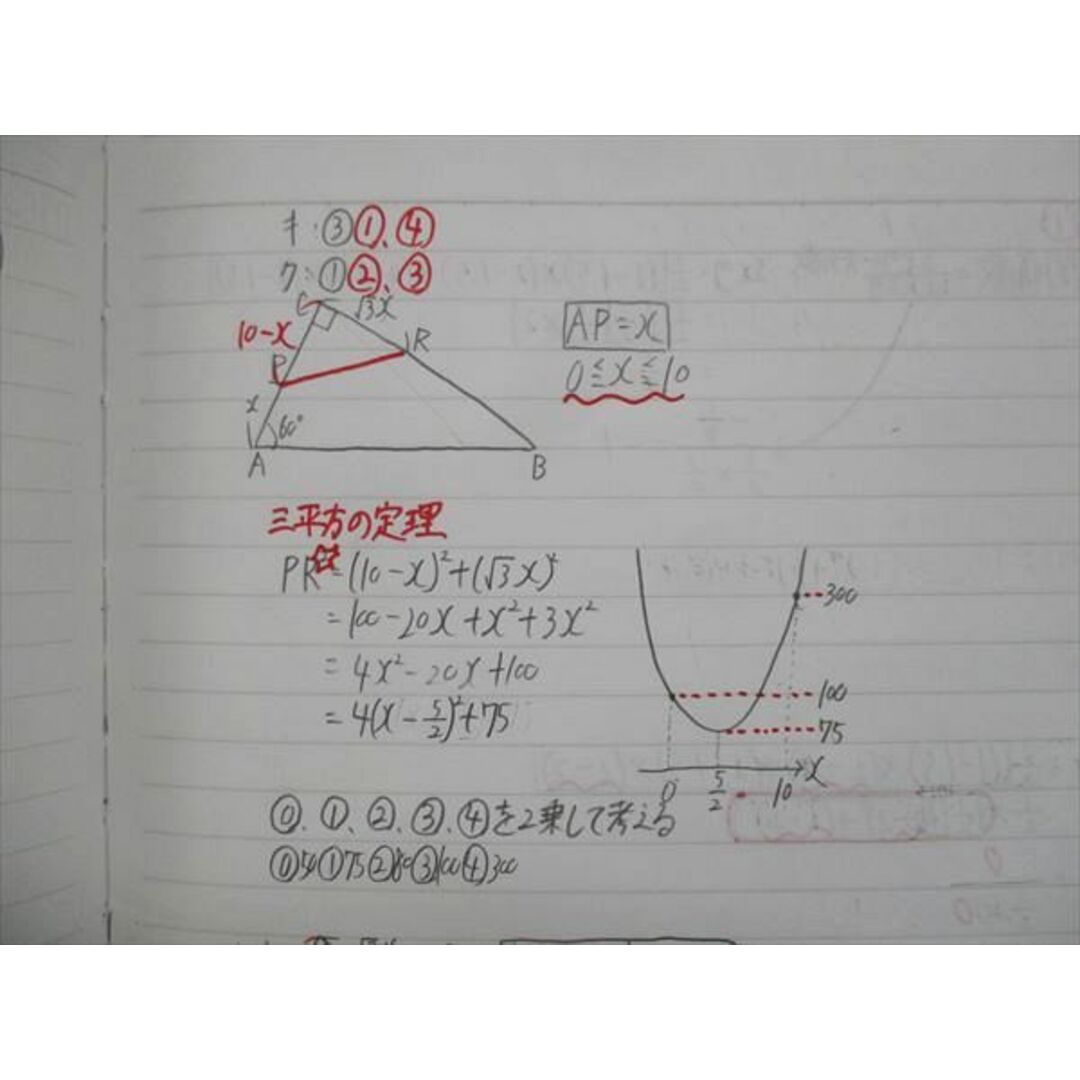 キ:③①、④
ク:①②、③
C
√3x
10-x
R
P
x
60°
A
B
AP=x
0≦x≦10
三平方の定理
PR²=(10-x)²+(√3x)²
=100-20x+x²+3x²
=4x²-20x+100
=4(x-5/2)²+75
300
100
75
x
0
5/2
10
⓪、①、②、③、④を2乗して考える
⓪54①75②80③100④300